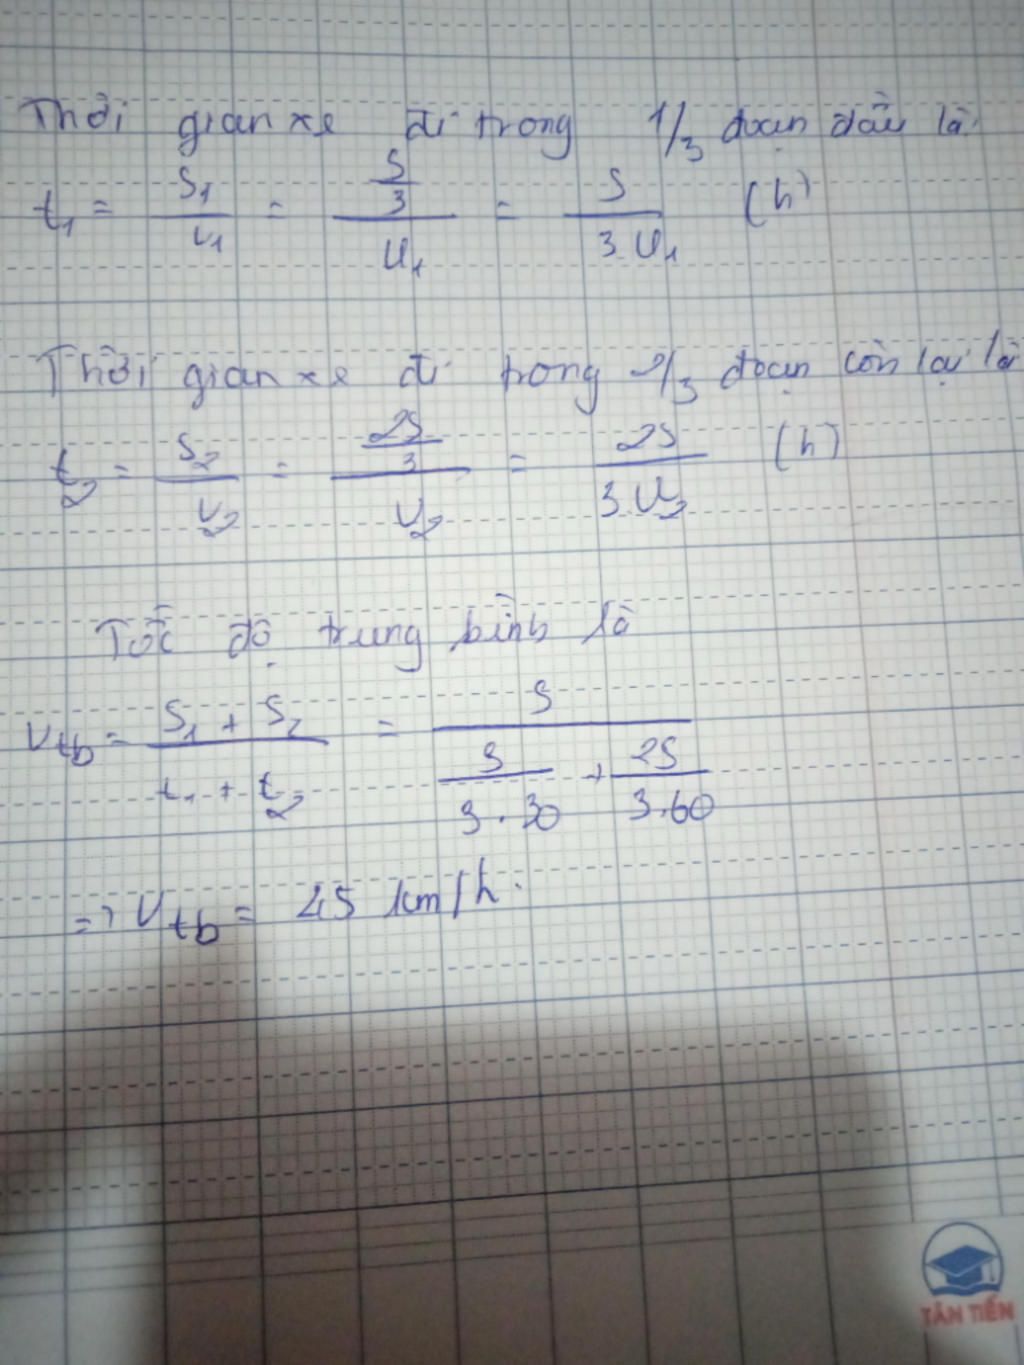 Thời gian xe đi trong 1/3 đoạn đầu là
t₁ = S₁/v₁ = (S/3)/v₁ = S/(3.v₁) (h)
Thời gian xe đi trong 2/3 đoạn còn lại là
t₂ = S₂/v₂ = (2S/3)/v₂ = 2S/(3.v₂) (h)
Tốc độ trung bình là
v_tb = (S₁ + S₂)/(t₁ + t₂) = S/(S/(3.30) + 2S/(3.60))
=> v_tb = 45 km/h.
TÂN TIẾN